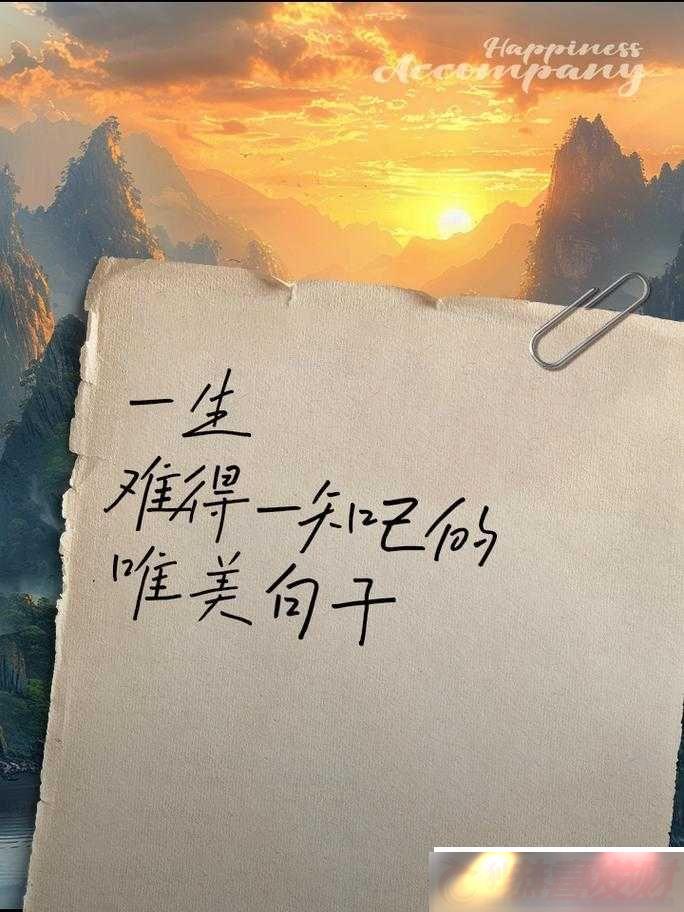 Happiness
Accompany
一生
难得一知己的
唯美句子